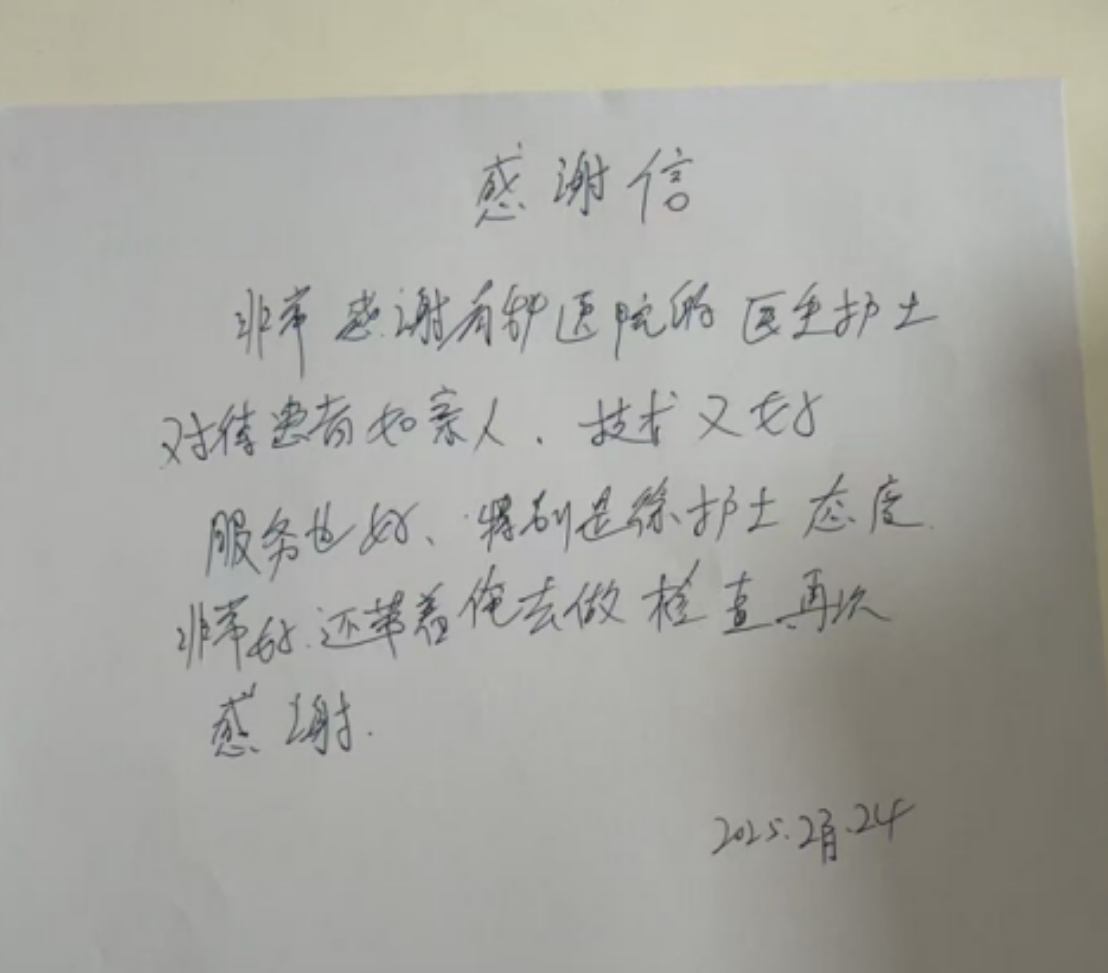 感谢信
非常感谢有护医院的医生护士
对待患者如亲人、技术又好
服务也好、特别是徐护士态度
非常好.还带着俺去做检查再次
感谢.
2025.2月.24